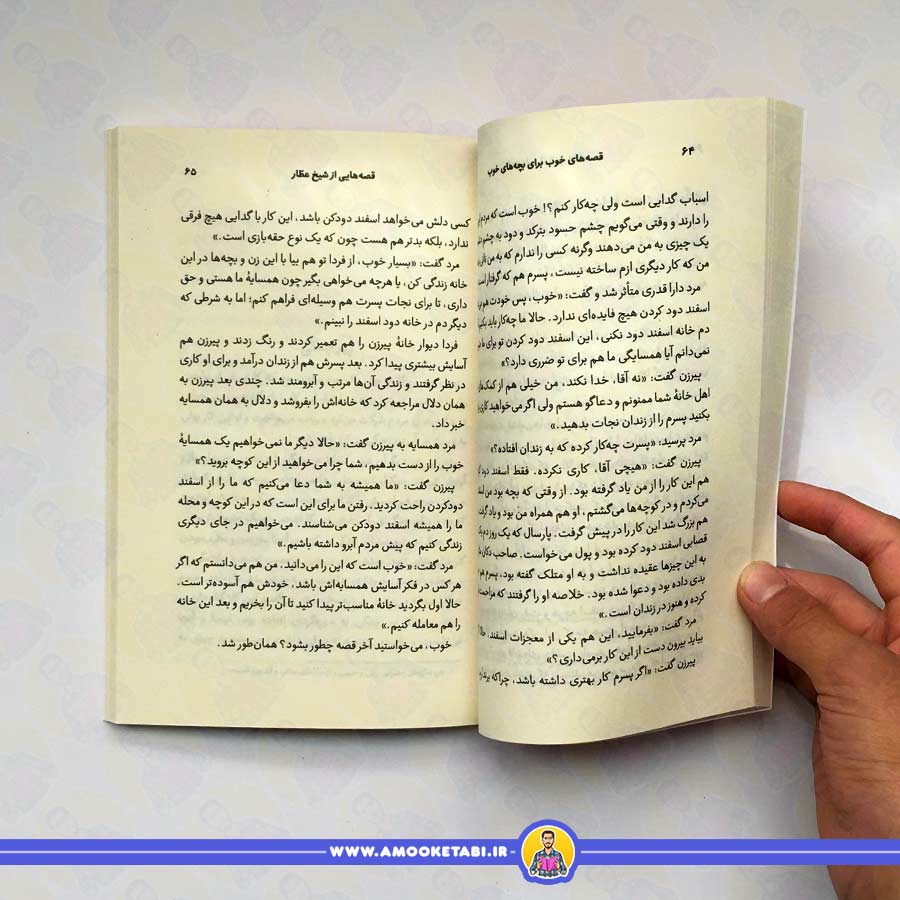 ۶۴
قصه‌های خوب برای بچه‌های خوب
اسباب گدایی است ولی چه‌کار کنم؟! خوب است که مردم
را دارند و وقتی می‌گویم چشم حسود بترکد و دود به چشم
یک چیزی به من می‌دهند وگرنه کسی را ندارم که به من نان
من که کار دیگری ازم ساخته نیست، پسرم هم که گرفتار است
مرد دارا قدری متأثر شد و گفت: «خوب، پس خودت هم
اسفند دود کردن هیچ فایده‌ای ندارد. حالا ما چه‌کار باید بکنیم
دم خانه اسفند دود نکنی، این اسفند دود کردن تو برای ما
نمی‌دانم آیا همسایگی ما هم برای تو ضرری دارد؟»
پیرزن گفت: «نه آقا، خدا نکند، من خیلی هم از کمک‌های
اهل خانهٔ شما ممنونم و دعاگو هستم ولی اگر می‌خواهید کاری
بکنید پسرم را از زندان نجات بدهید.»
مرد پرسید: «پسرت چه‌کار کرده که به زندان افتاده؟»
پیرزن گفت: «هیچی آقا، کاری نکرده. فقط اسفند دود
هم این کار را از من یاد گرفته بود. از وقتی که بچه بود من
می‌کردم و در کوچه‌ها می‌گشتم، او هم همراه من بود و یاد گرفت
هم بزرگ شد این کار را در پیش گرفت. پارسال که یک روز دم یک
قصابی اسفند دود کرده بود و پول می‌خواست. صاحب دکان
به این چیزها عقیده نداشت و به او متلک گفته بود، پسرم هم
بدی داده بود و دعوا شده بود. خلاصه او را گرفتند که مزاحمت
کرده و هنوز در زندان است.»
مرد گفت: «بفرمایید، این هم یکی از معجزات اسفند. حالا
بیاید بیرون دست از این کار برمی‌داری؟»
پیرزن گفت: «اگر پسرم کار بهتری داشته باشد، چراکه
۶۵
قصه‌هایی از شیخ عطّار
کسی دلش می‌خواهد اسفند دودکن باشد، این کار با گدایی هیچ فرقی
ندارد، بلکه بدتر هم هست چون که یک نوع حقه‌بازی است.»
مرد گفت: «بسیار خوب، از فردا تو هم بیا با این زن و بچه‌ها در این
خانه زندگی کن، یا هرچه می‌خواهی بگیر چون همسایهٔ ما هستی و حق
داری، تا برای نجات پسرت هم وسیله‌ای فراهم کنم؛ اما به شرطی که
دیگر دم در خانه دود اسفند را نبینم.»
فردا دیوار خانهٔ پیرزن را هم تعمیر کردند و رنگ زدند و پیرزن هم
آسایش بیشتری پیدا کرد. بعد پسرش هم از زندان درآمد و برای او کاری
در نظر گرفتند و زندگی آن‌ها مرتب و آبرومند شد. چندی بعد پیرزن به
همان دلال مراجعه کرد که خانه‌اش را بفروشد و دلال به همان همسایه
خبر داد.
مرد همسایه به پیرزن گفت: «حالا دیگر ما نمی‌خواهیم یک همسایهٔ
خوب را از دست بدهیم، شما چرا می‌خواهید از این کوچه بروید؟»
پیرزن گفت: «ما همیشه به شما دعا می‌کنیم که ما را از اسفند
دودکردن راحت کردید. رفتن ما برای این است که در این کوچه و محله
ما را همیشه اسفند دودکن می‌شناسند. می‌خواهیم در جای دیگری
زندگی کنیم که پیش مردم آبرو داشته باشیم.»
مرد گفت: «خوب است که این را می‌دانید. من هم می‌دانستم که اگر
هر کس در فکر آسایش همسایه‌اش باشد، خودش هم آسوده‌تر است.
حالا اول بگردید خانهٔ مناسب‌تر پیدا کنید تا آن را بخریم و بعد این خانه
را هم معامله کنیم.»
خوب، می‌خواستید آخر قصه چطور بشود؟ همان‌طور شد.
WWW.AMOOKETABI.IR